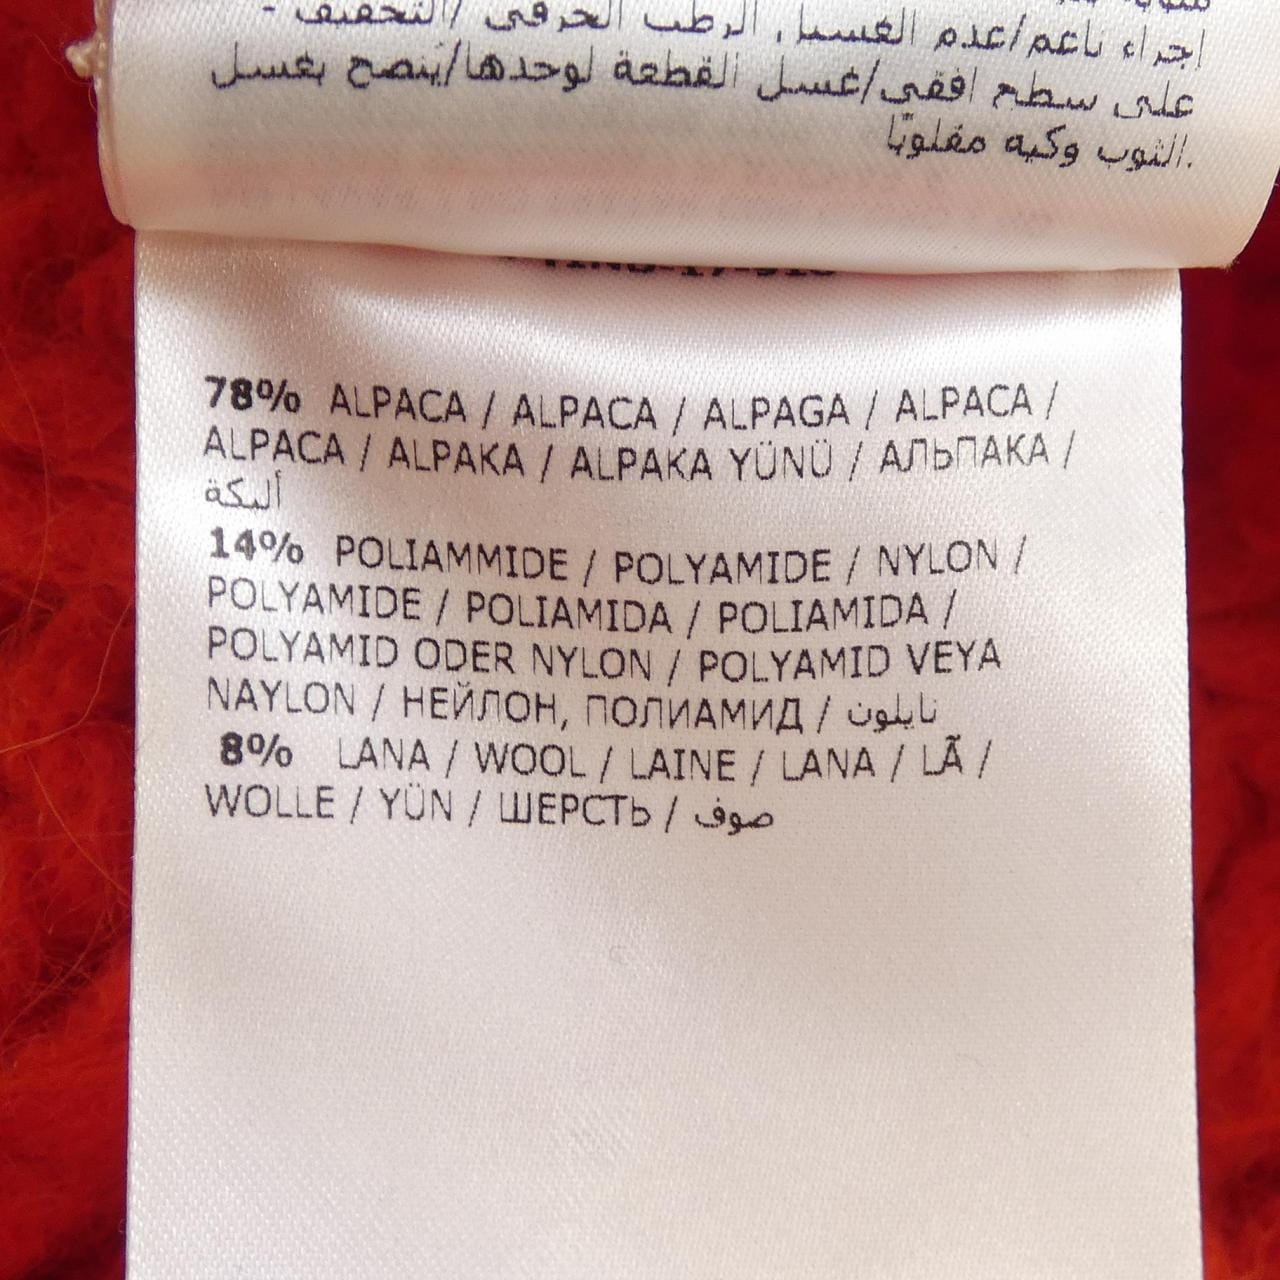 اجراء ناعم/عدم الغسيل الرطب الحرفي /التجفيف -
على سطح افقي/غسل القطعة لوحدها/يُنصح بغسل
الثوب وكيه مقلوبًا.
78% ALPACA / ALPACA / ALPAGA / ALPACA /
ALPACA / ALPAKA / ALPAKA YÜNÜ / АЛЬПАКА /
ألبكة
14% POLIAMMIDE / POLYAMIDE / NYLON /
POLYAMIDE / POLIAMIDA / POLIAMIDA /
POLYAMID ODER NYLON / POLYAMID VEYA
NAYLON / НЕЙЛОН, ПОЛИАМИД / نايلون
8% LANA / WOOL / LAINE / LANA / LÃ /
WOLLE / YÜN / ШЕРСТЬ / صوف